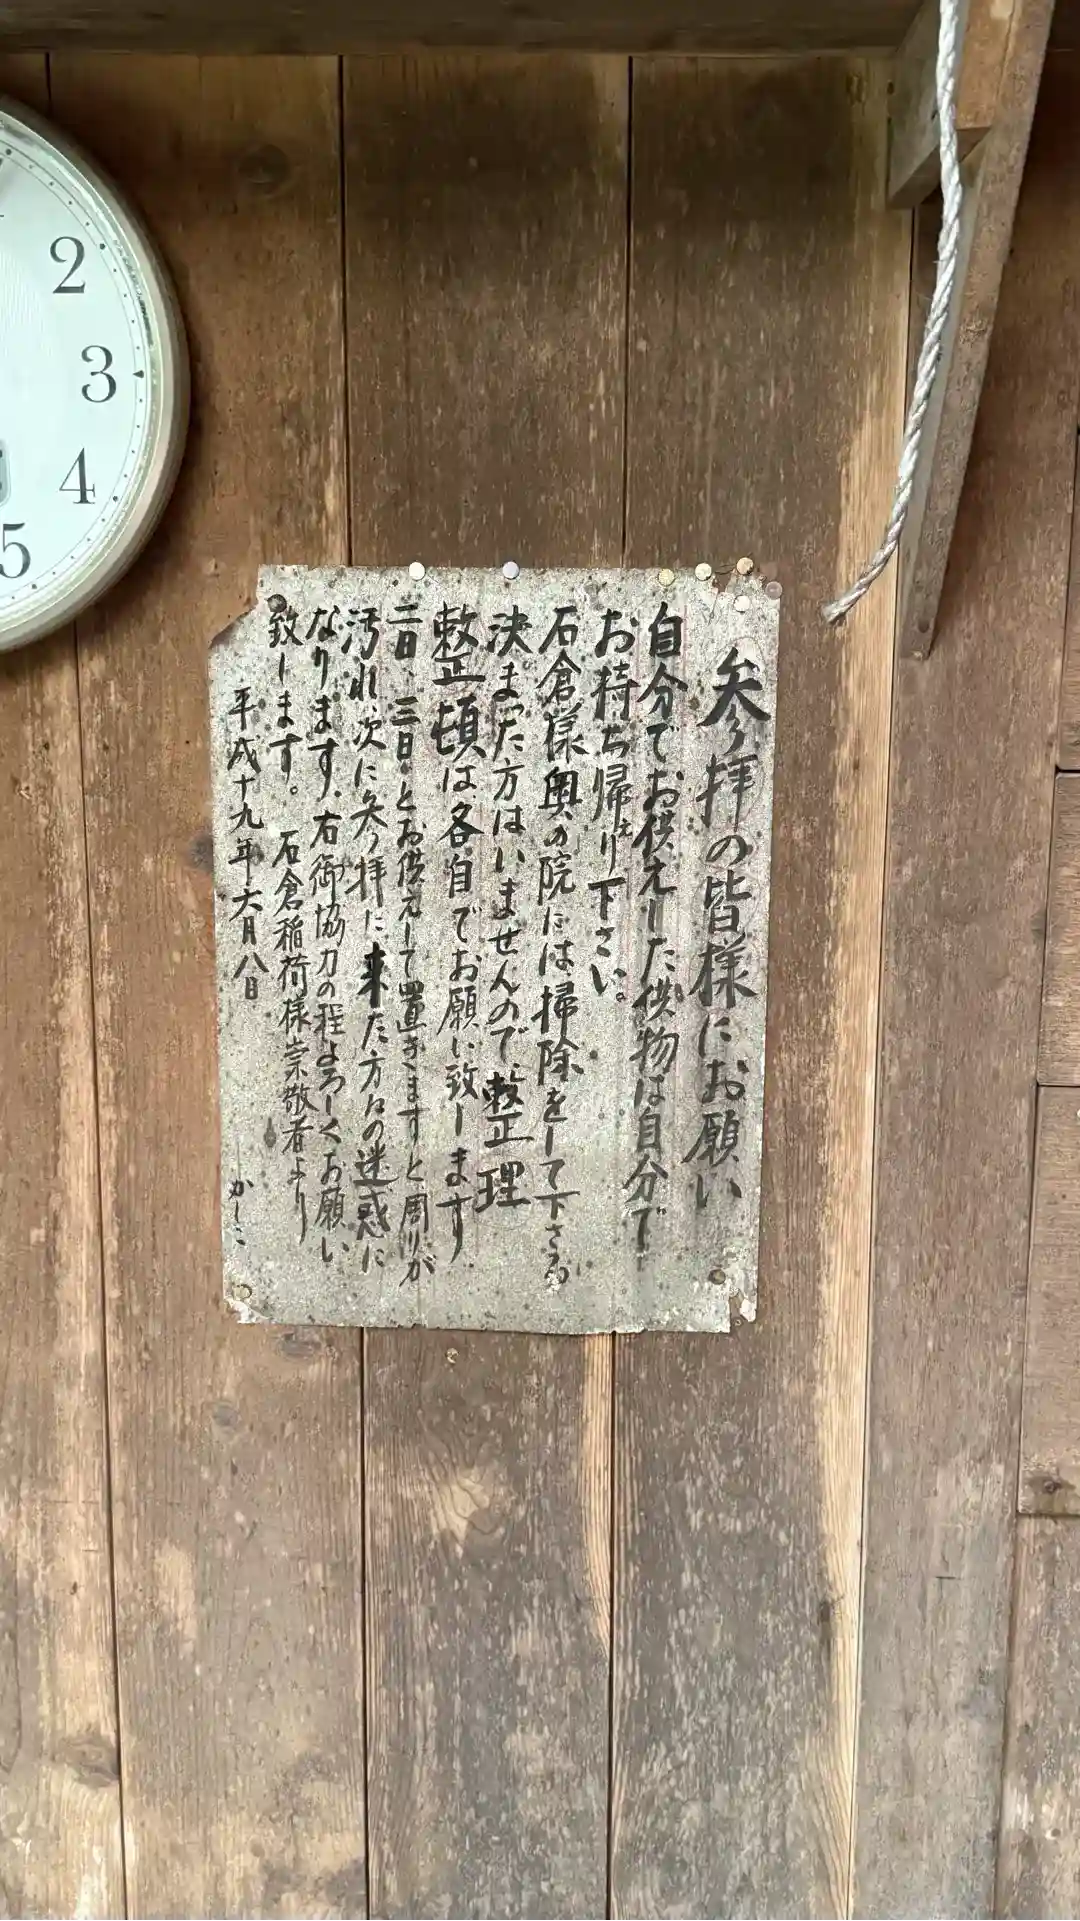 2
3
4
5
参り拝の皆様にお願い
自分でお供えした供物は自分で
お持ち帰えり下さい。
石倉様奥の院には、掃除をして下さる
決まった方はいませんので、整理
整頓は、各自でお願い致します
二日、三日、とお供えして置きますと周りが
汚れ、次に参り拝に来た方々の迷惑に
なります、右御協力の程よろしくお願い
致します。 石倉稲荷様崇敬者より
平成十九年六月八日 かしこ